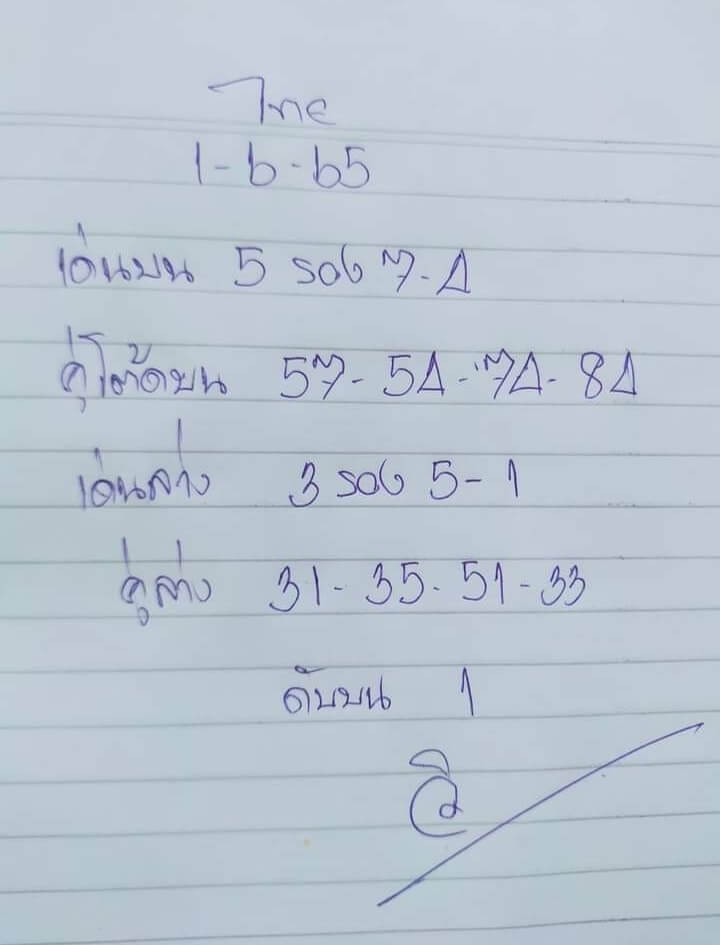 ไทย
1-6-65
เด่นบน 5 รอง 7-4
คู่โต๊ดบน 57-54-74-84
เด่นล่าง 3 รอง 5-1
คู่ล่าง 31-35-51-33
ดับบน 1
วิ